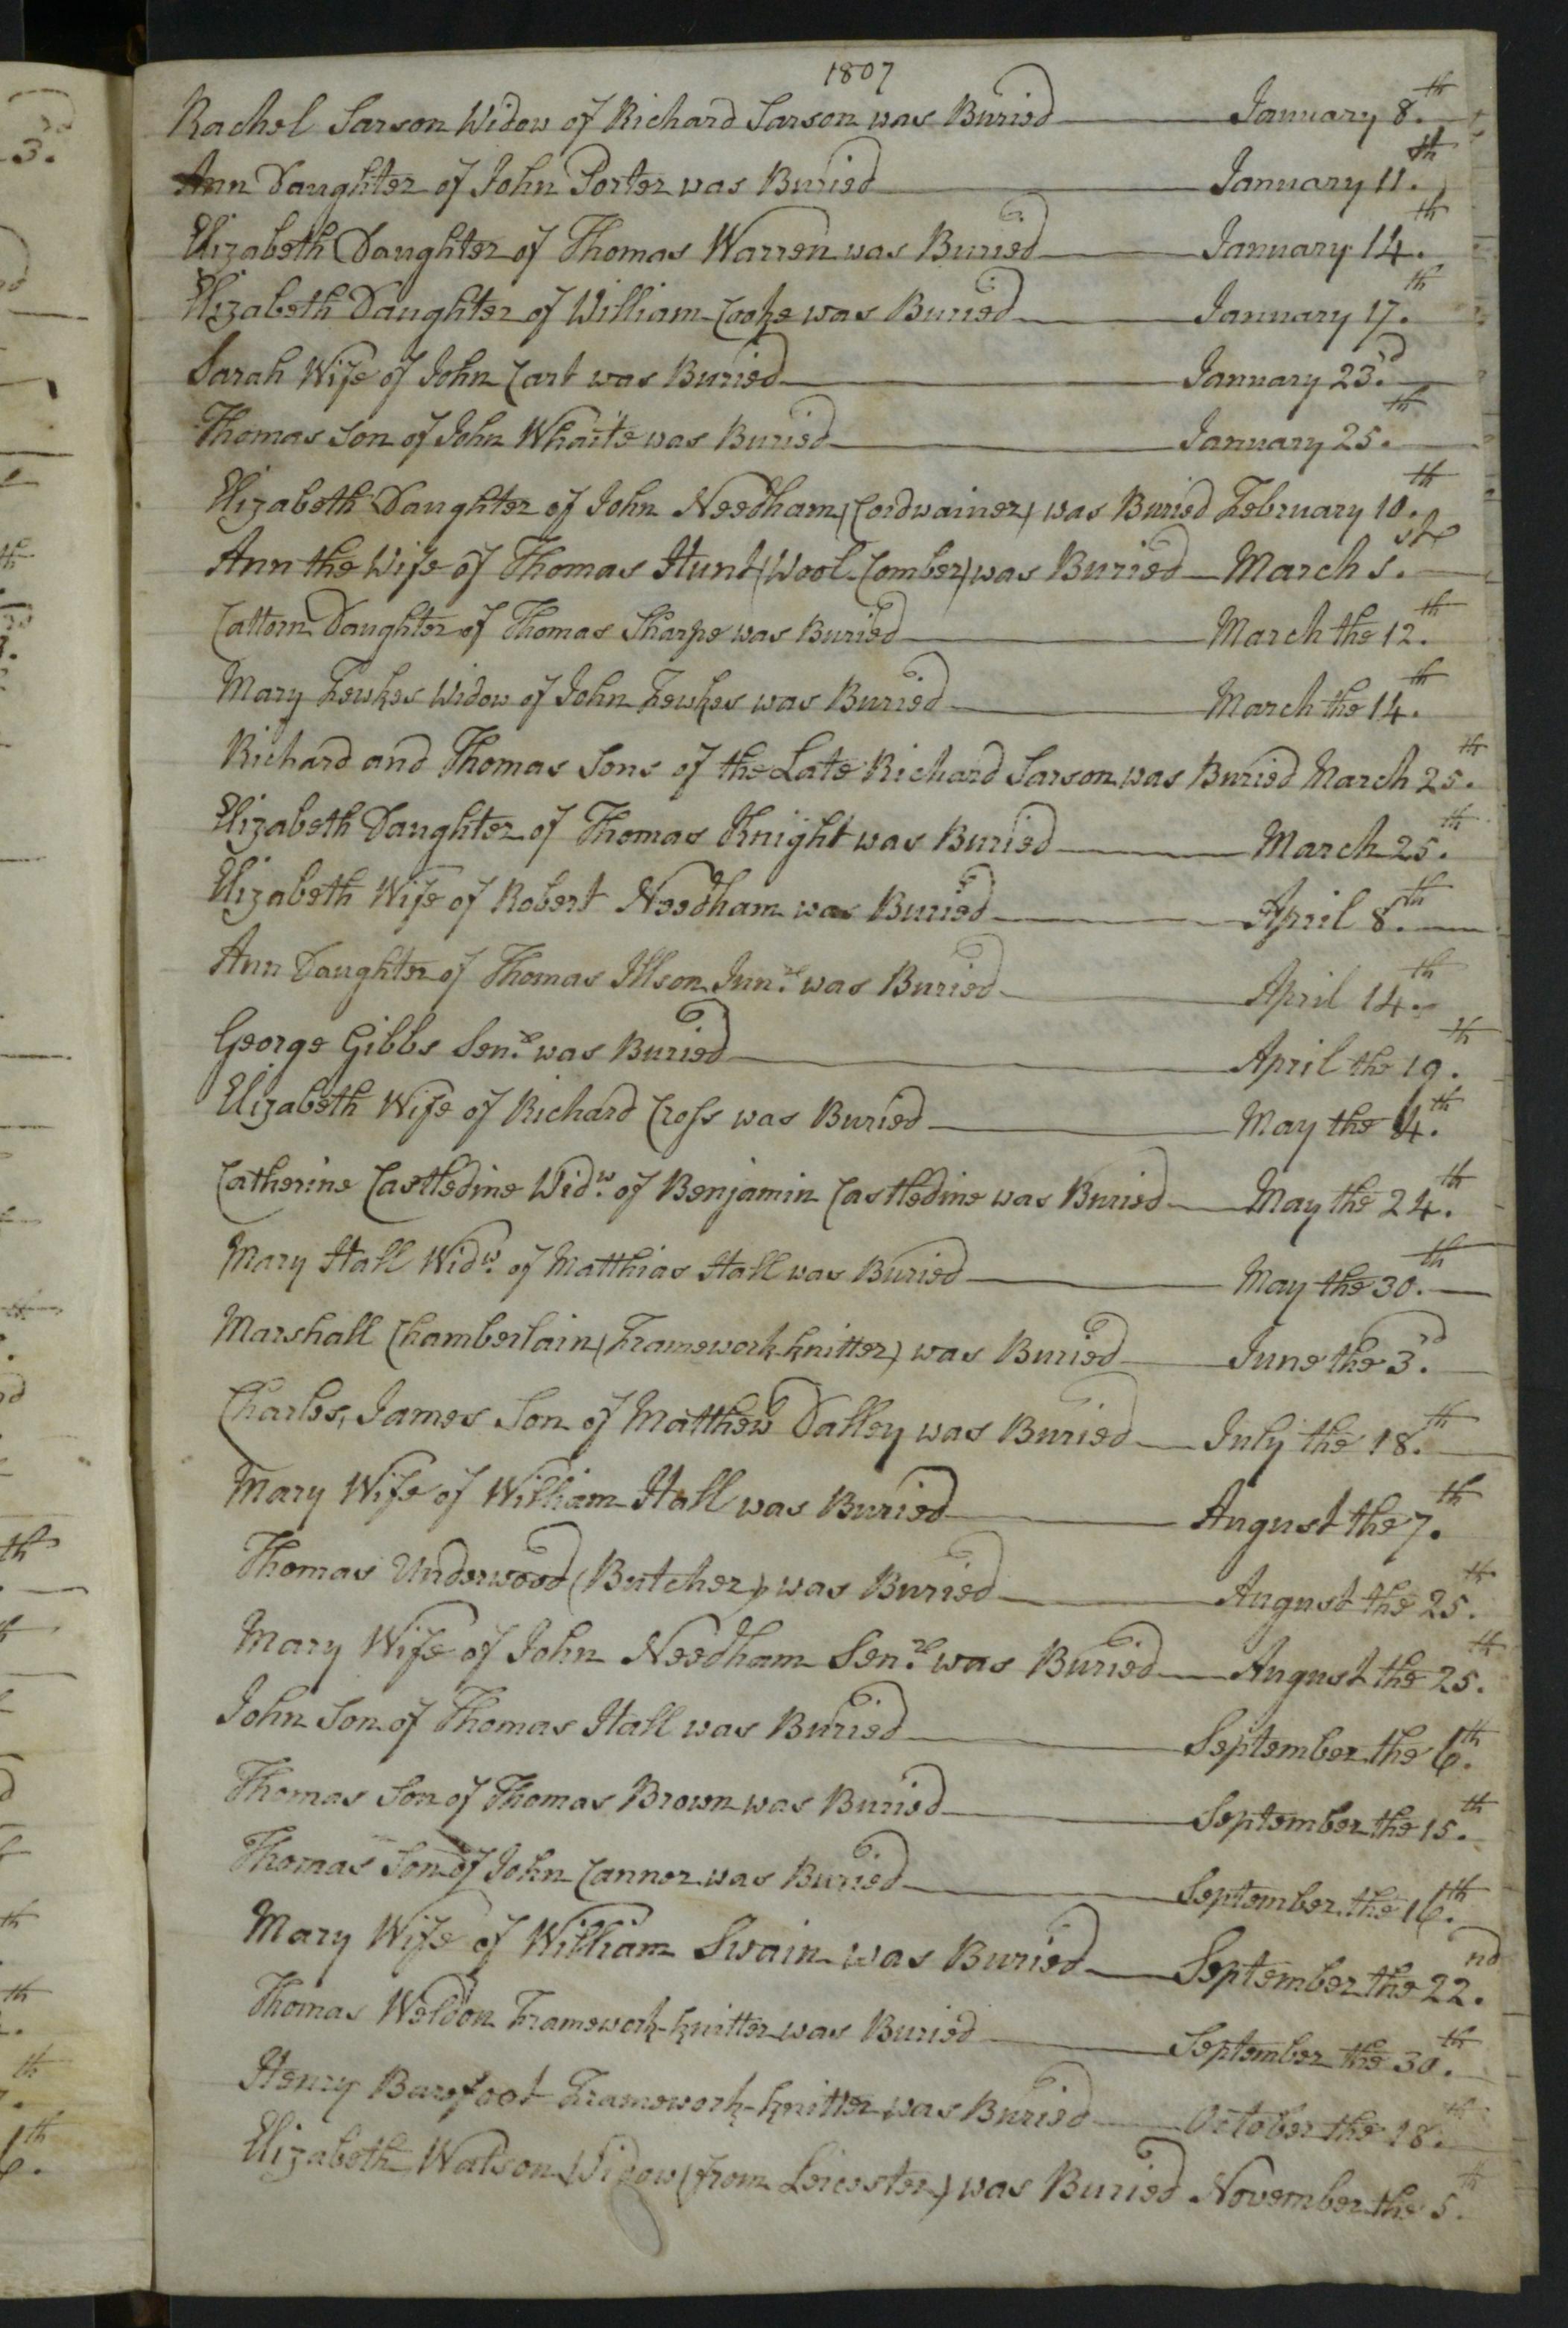 1807
Rachel Sarson Widow of Richard Sarson was Buried January 8.th
Ann Daughter of John Porter was Buried January 11.th
Elizabeth Daughter of Thomas Warren was Buried January 14.th
Elizabeth Daughter of William Cooke was Buried January 17.th
Sarah Wife of John Cart was Buried January 23.rd
Thomas Son of John Whaite was Buried January 25.th
Elizabeth Daughter of John Needham (Cordwainer) was Buried February 10.th
Ann the Wife of Thomas Hunt (Wool-Comber) was Buried March 1.st
Cattern Daughter of Thomas Sharpe was Buried March the 12.th
Mary Fewkes Widow of John Fewkes was Buried March the 14.th
Richard and Thomas Sons of the Late Richard Sarson was Buried March 25.th
Elizabeth Daughter of Thomas Knight was Buried March 25.th
Elizabeth Wife of Robert Needham was Buried April 8.th
Ann Daughter of Thomas Illson Jun.r was Buried April 14.th
George Gibbs Sen.r was Buried April the 19.th
Elizabeth Wife of Richard Cross was Buried May the 4.th
Catherine Castledine Wid.w of Benjamin Castledine was Buried May the 24.th
Mary Hall Wid.w of Matthias Hall was Buried May the 30.th
Marshall Chamberlain (Framework-knitter) was Buried June the 3.rd
Charles, James Son of Matthew Dalley was Buried July the 18.th
Mary Wife of William Hall was Buried August the 7.th
Thomas Underwood (Butcher) was Buried August the 25.th
Mary Wife of John Needham Sen.r was Buried August the 25.th
John Son of Thomas Hall was Buried September the 6.th
Thomas Son of Thomas Brown was Buried September the 15.th
Thomas Son of John Canner was Buried September the 16.th
Mary Wife of William Swain was Buried September the 22.nd
Thomas Weldon Framework-knitter was Buried September the 30.th
Henry Barefoot Framework-knitter was Buried October the 18.th
Elizabeth Watson Widow (from Leicester) was Buried November the 5.th